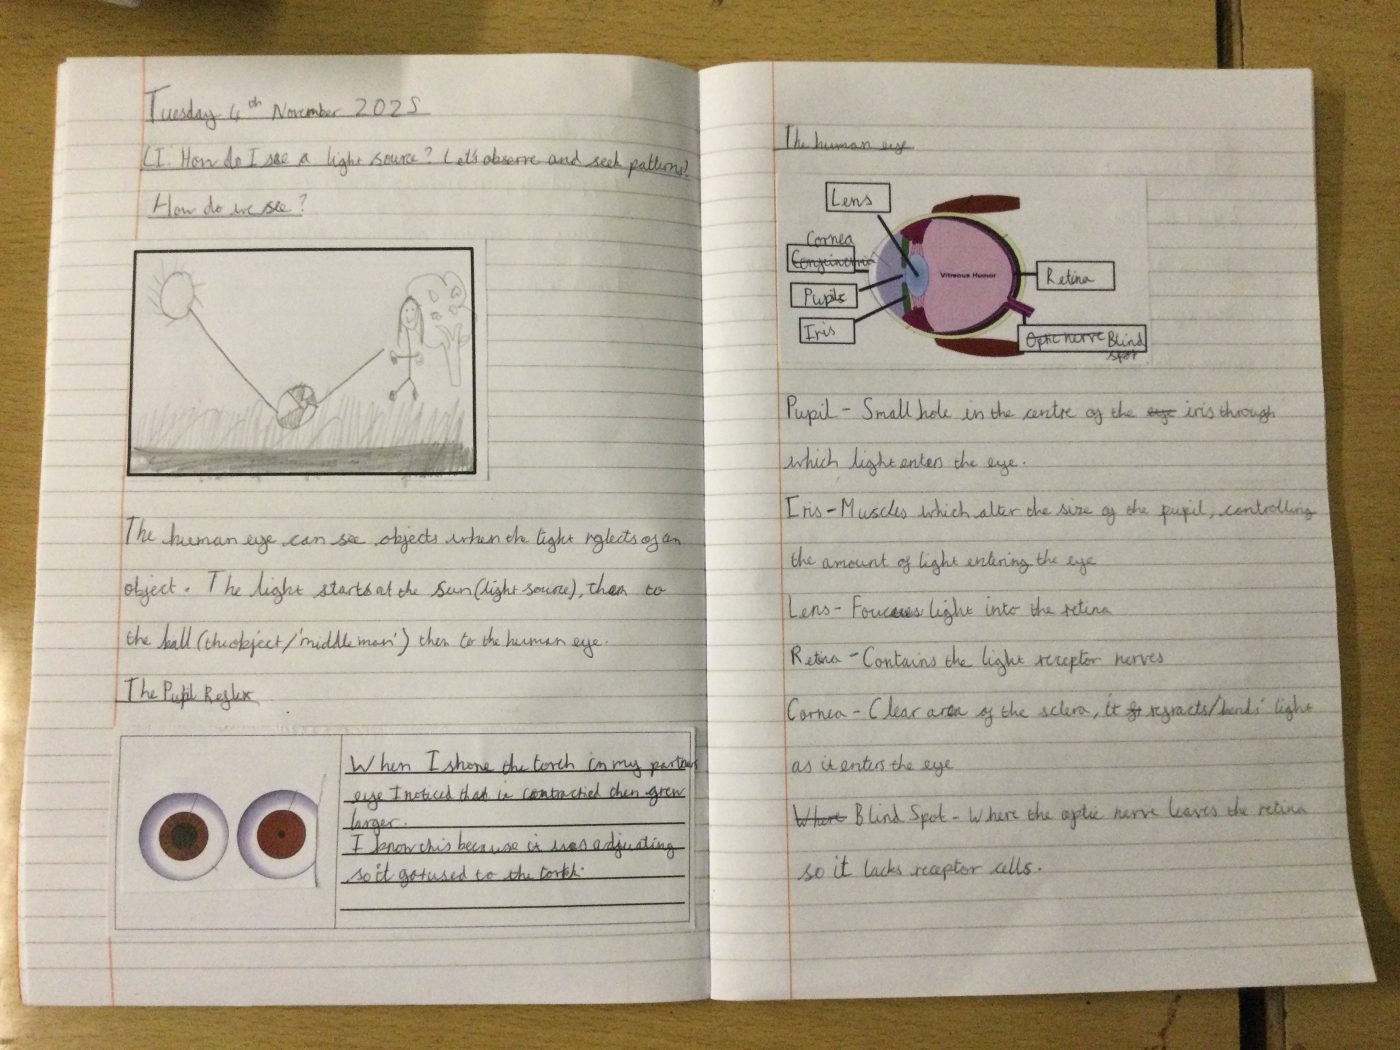 Tuesday 4th November 2025
LI: How do I see a light source? Let's observe and seek patterns?
How do we see?
The human eye can see objects when the light reflects of an
object. The light starts at the sun (light source), then to
the ball (the object/'middle man') then to the human eye.
The Pupil Reflex
When I shone the torch in my partners
eye I noticed that it contracted then grew
larger.
I know this because it was adjusting
so it got used to the torch.
The human eye
Lens
Cornea
Pupils
Iris
Vitreous Humor
Retina
Optic nerve Blind
spot
Pupil - Small hole in the centre of the eye iris through
which light enters the eye.
Iris - Muscles which alter the size of the pupil, controlling
the amount of light entering the eye
Lens - Foucuses light into the retina
Retina - Contains the light receptor nerves
Cornea - Clear area of the sclera, it refracts/'bends' light
as it enters the eye
Where Blind Spot - Where the optic nerve leaves the retina
so it lacks receptor cells.